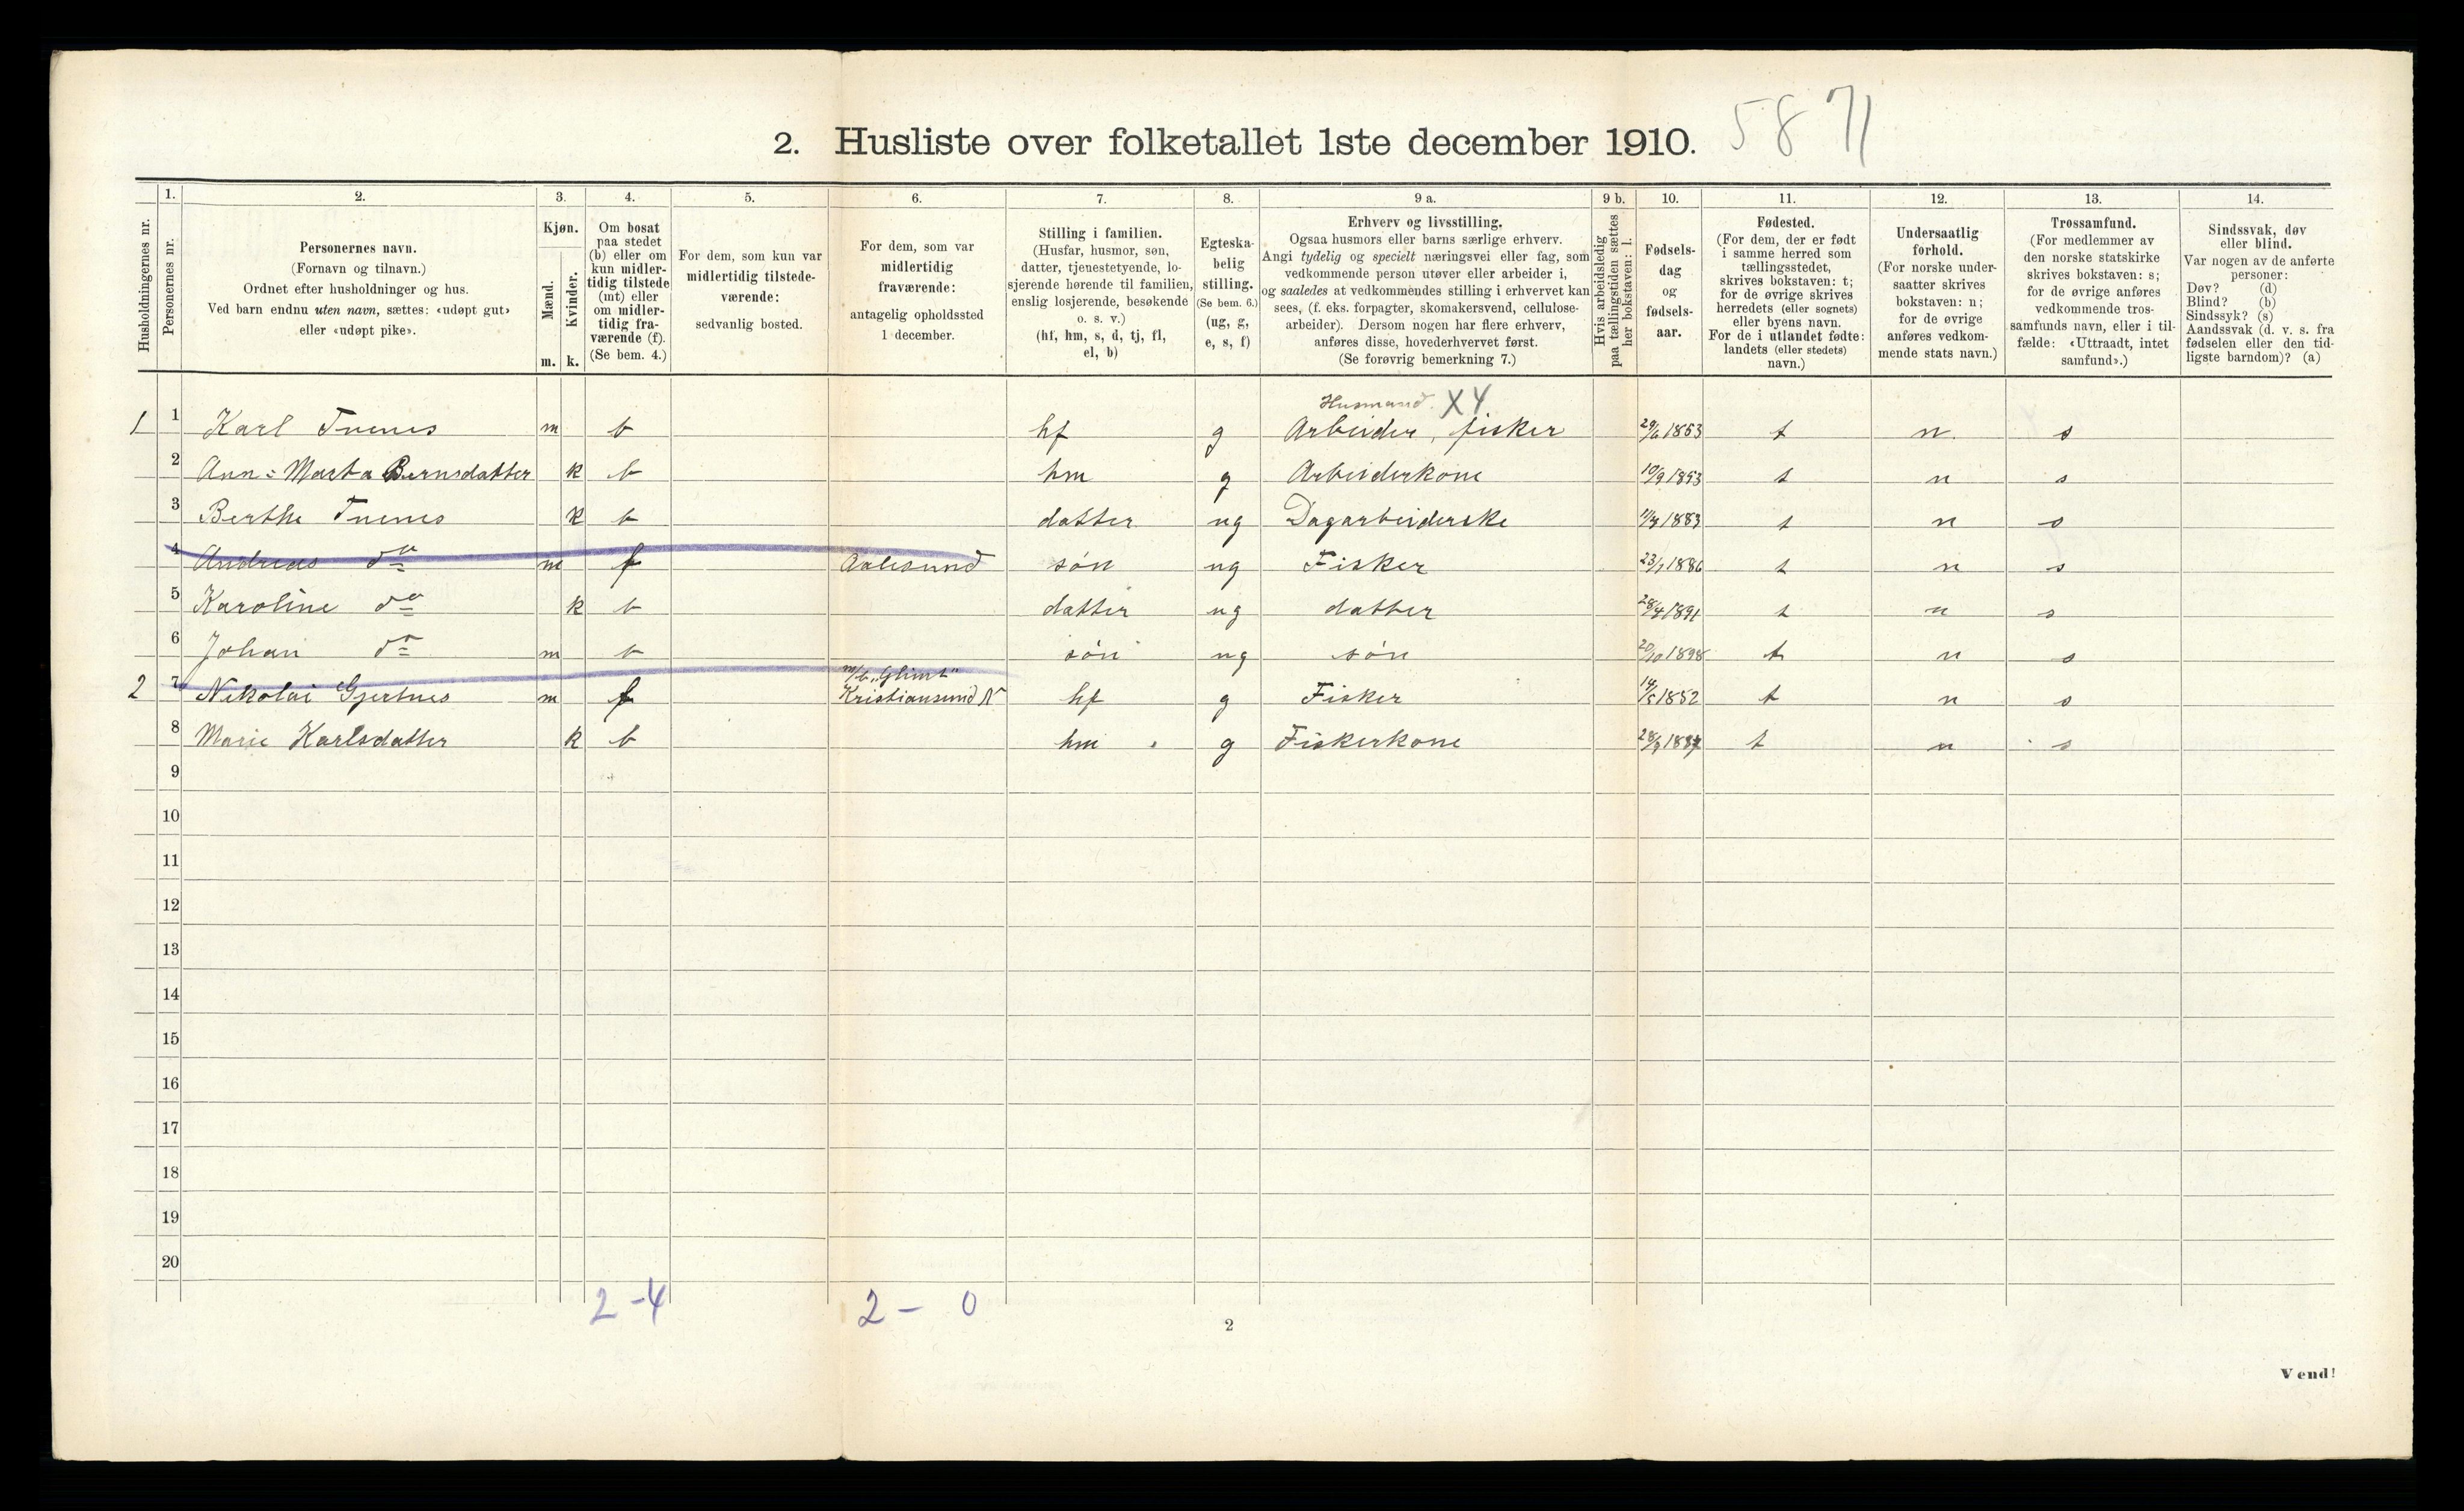 58 71
2. Husliste over folketallet 1ste december 1910.
Husholdningernes nr.
1.
Personernes nr.
2.
Personernes navn.
(Fornavn og tilnavn.)
Ordnet efter husholdninger og hus.
Ved barn endnu uten navn, sættes: «udøpt gut»
eller «udøpt pike».
3.
Kjøn.
Mænd.
m.
Kvinder.
k.
4.
Om bosat
paa stedet
(b) eller om
kun midler-
tidig tilstede
(mt) eller
om midler-
tidig fra-
værende (f).
(Se bem. 4.)
5.
For dem, som kun var
midlertidig tilstede-
værende:
sedvanlig bosted.
6.
For dem, som var
midlertidig
fraværende:
antagelig opholdssted
1 december.
7.
Stilling i familien.
(Husfar, husmor, søn,
datter, tjenestetyende, lo-
sjerende hørende til familien,
enslig losjerende, besøkende
o. s. v.)
(hf, hm, s, d, tj, fl,
el, b)
8.
Egteska-
belig
stilling.
(Se bem. 6.)
(ug, g,
e, s, f)
9 a.
Erhverv og livsstilling.
Ogsaa husmors eller barns særlige erhverv.
Angi tydelig og specielt næringsvei eller fag, som
vedkommende person utøver eller arbeider i,
og saaledes at vedkommendes stilling i erhvervet kan
sees, (f. eks. forpagter, skomakersvend, cellulose-
arbeider). Dersom nogen har flere erhverv,
anføres disse, hovederhvervet først.
(Se forøvrig bemerkning 7.)
9 b.
Hvis arbeidsledig
paa tællingstiden sættes
her bokstaven: l.
10.
Fødsels-
dag
og
fødsels-
aar.
11.
Fødested.
(For dem, der er født
i samme herred som
tællingsstedet,
skrives bokstaven: t;
for de øvrige skrives
herredets (eller sognets)
eller byens navn.
For de i utlandet fødte:
landets (eller stedets)
navn.)
12.
Undersaatlig
forhold.
(For norske under-
saatter skrives
bokstaven: n;
for de øvrige
anføres vedkom-
mende stats navn.)
13.
Trossamfund.
(For medlemmer av
den norske statskirke
skrives bokstaven: s;
for de øvrige anføres
vedkommende tros-
samfunds navn, eller i til-
fælde: «Uttraadt, intet
samfund».)
14.
Sindssvak, døv
eller blind.
Var nogen av de anførte
personer:
Døv? (d)
Blind? (b)
Sindssyk? (s)
Aandssvak (d. v. s. fra
fødselen eller den tid-
ligste barndom)? (a)
Husmand. X4
1 1 Karl Tuenes m b hf g Arbeider, fisker 1853 t n. s
2 Ann-Marta Bernsdatter k b hm g Arbeiderkone 10/9 1853 t n s
3 Berthe Tuenes k b datter ug Dagarbeiderske 1883 t n s
4 Andreas do m f Aalesund søn ug Fisker 23/1 1886 t n s
5 Karoline do k b datter ug datter 28/4 1891 t n s
6 Johan do m b søn ug søn 20/10 1898 t n s
m/b "Glimt"
2 7 Nikolai Gjertnes m f Kristiansund N hf g Fisker 14/5 1852 t n s
8 Marie Karlsdatter k b hm g Fiskerkone t n s
9
10
11
12
13
14
15
16
17
18
19
20
2 - 4 2 - 0
2
Vend!